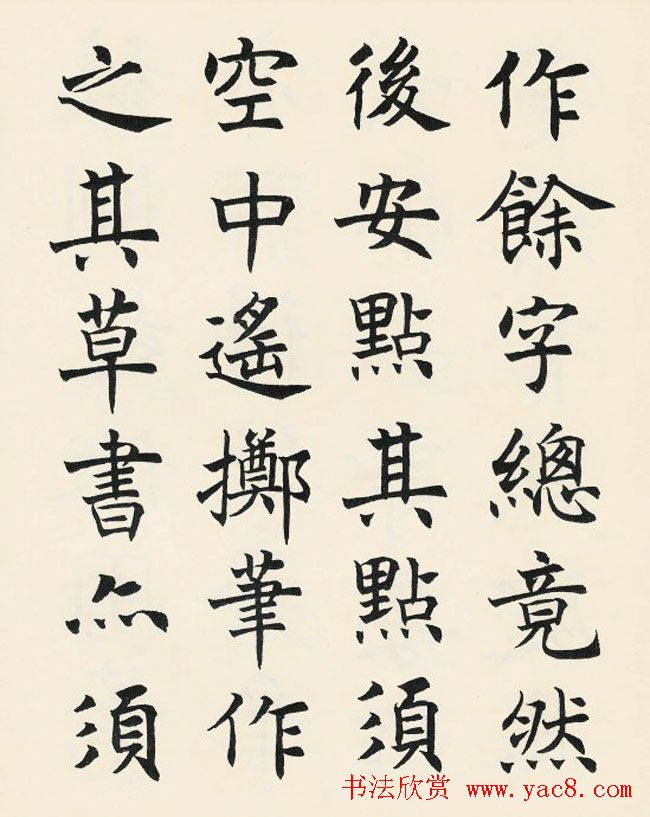 作餘字總竟然
後安點其點須
空中遙擲筆作
之其草書亦須
书法欣赏 www.yac8.com